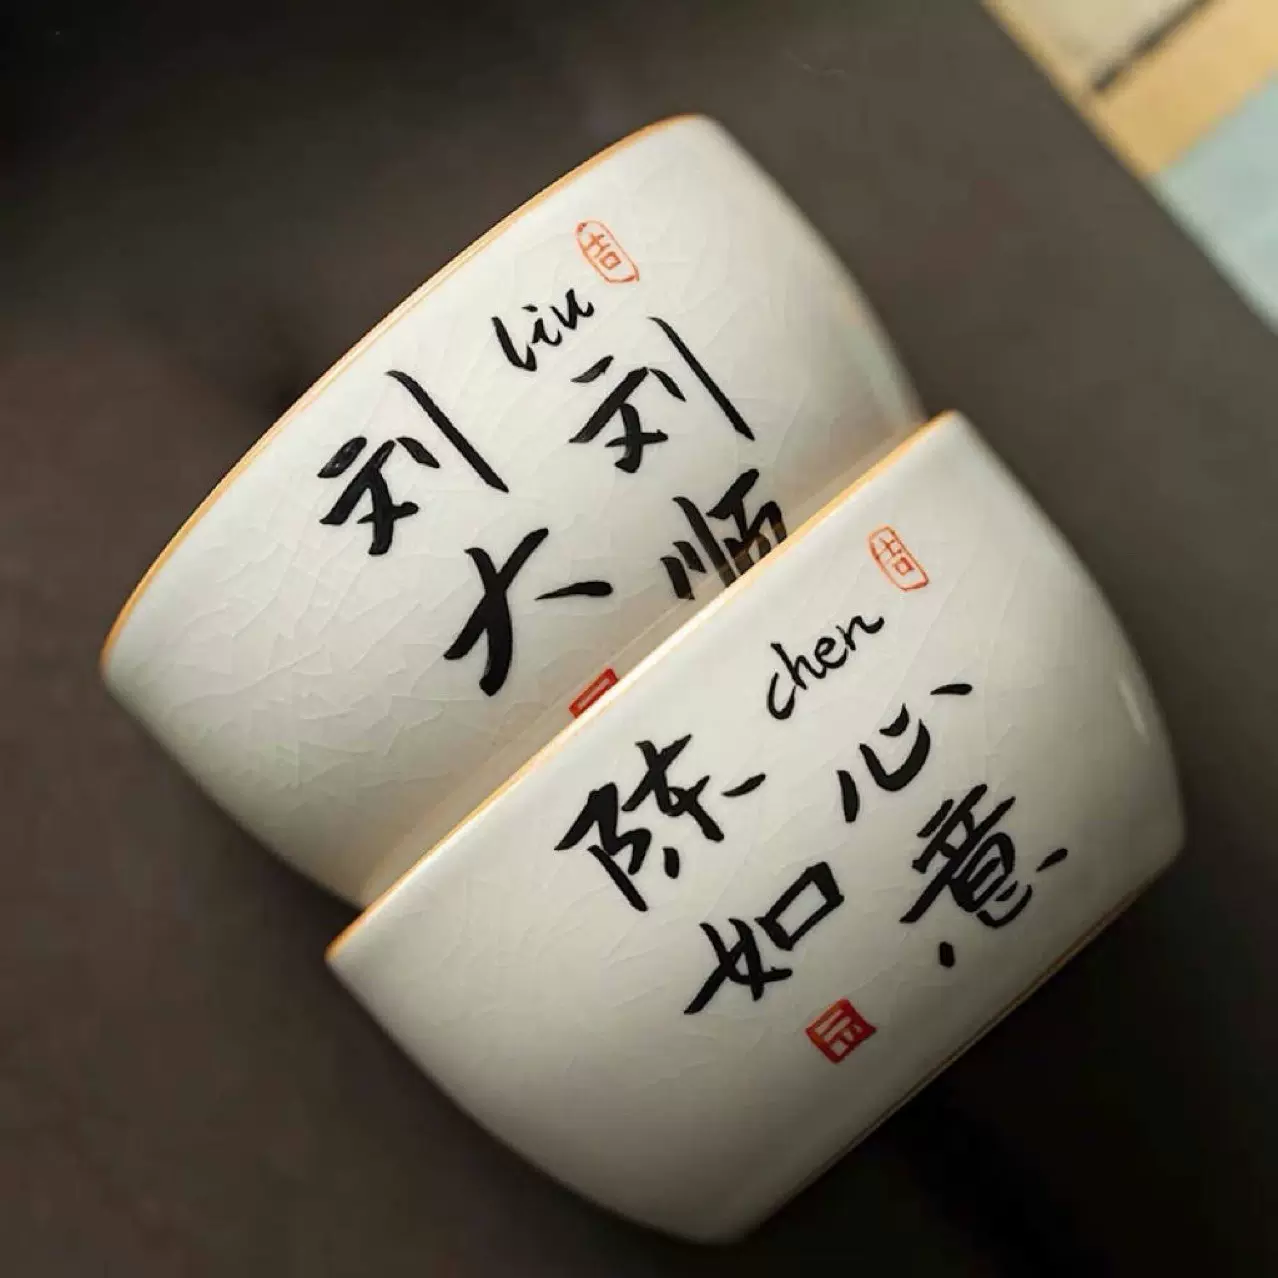 吉
liu
刘刘
大顺
吉
chen
陈心
如意